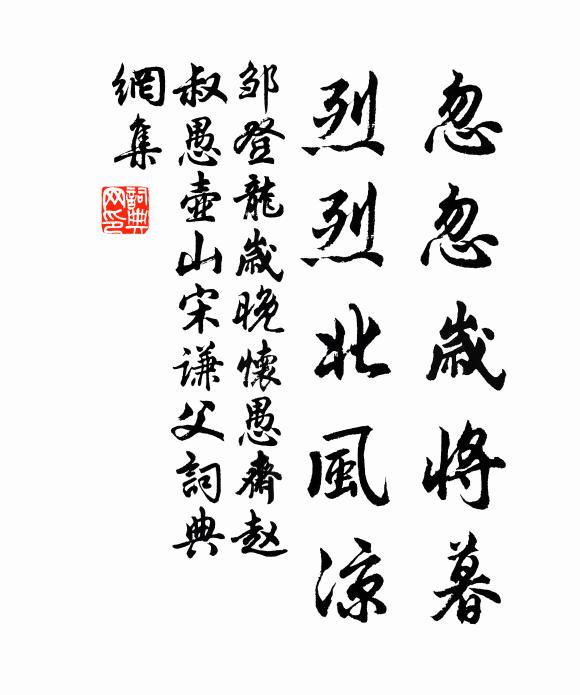 忽忽歲將暮
烈烈北風涼
邹登龍歲晚懷愚齋赵
叔愚壺山宋谦父詞典
網集
詞典網印